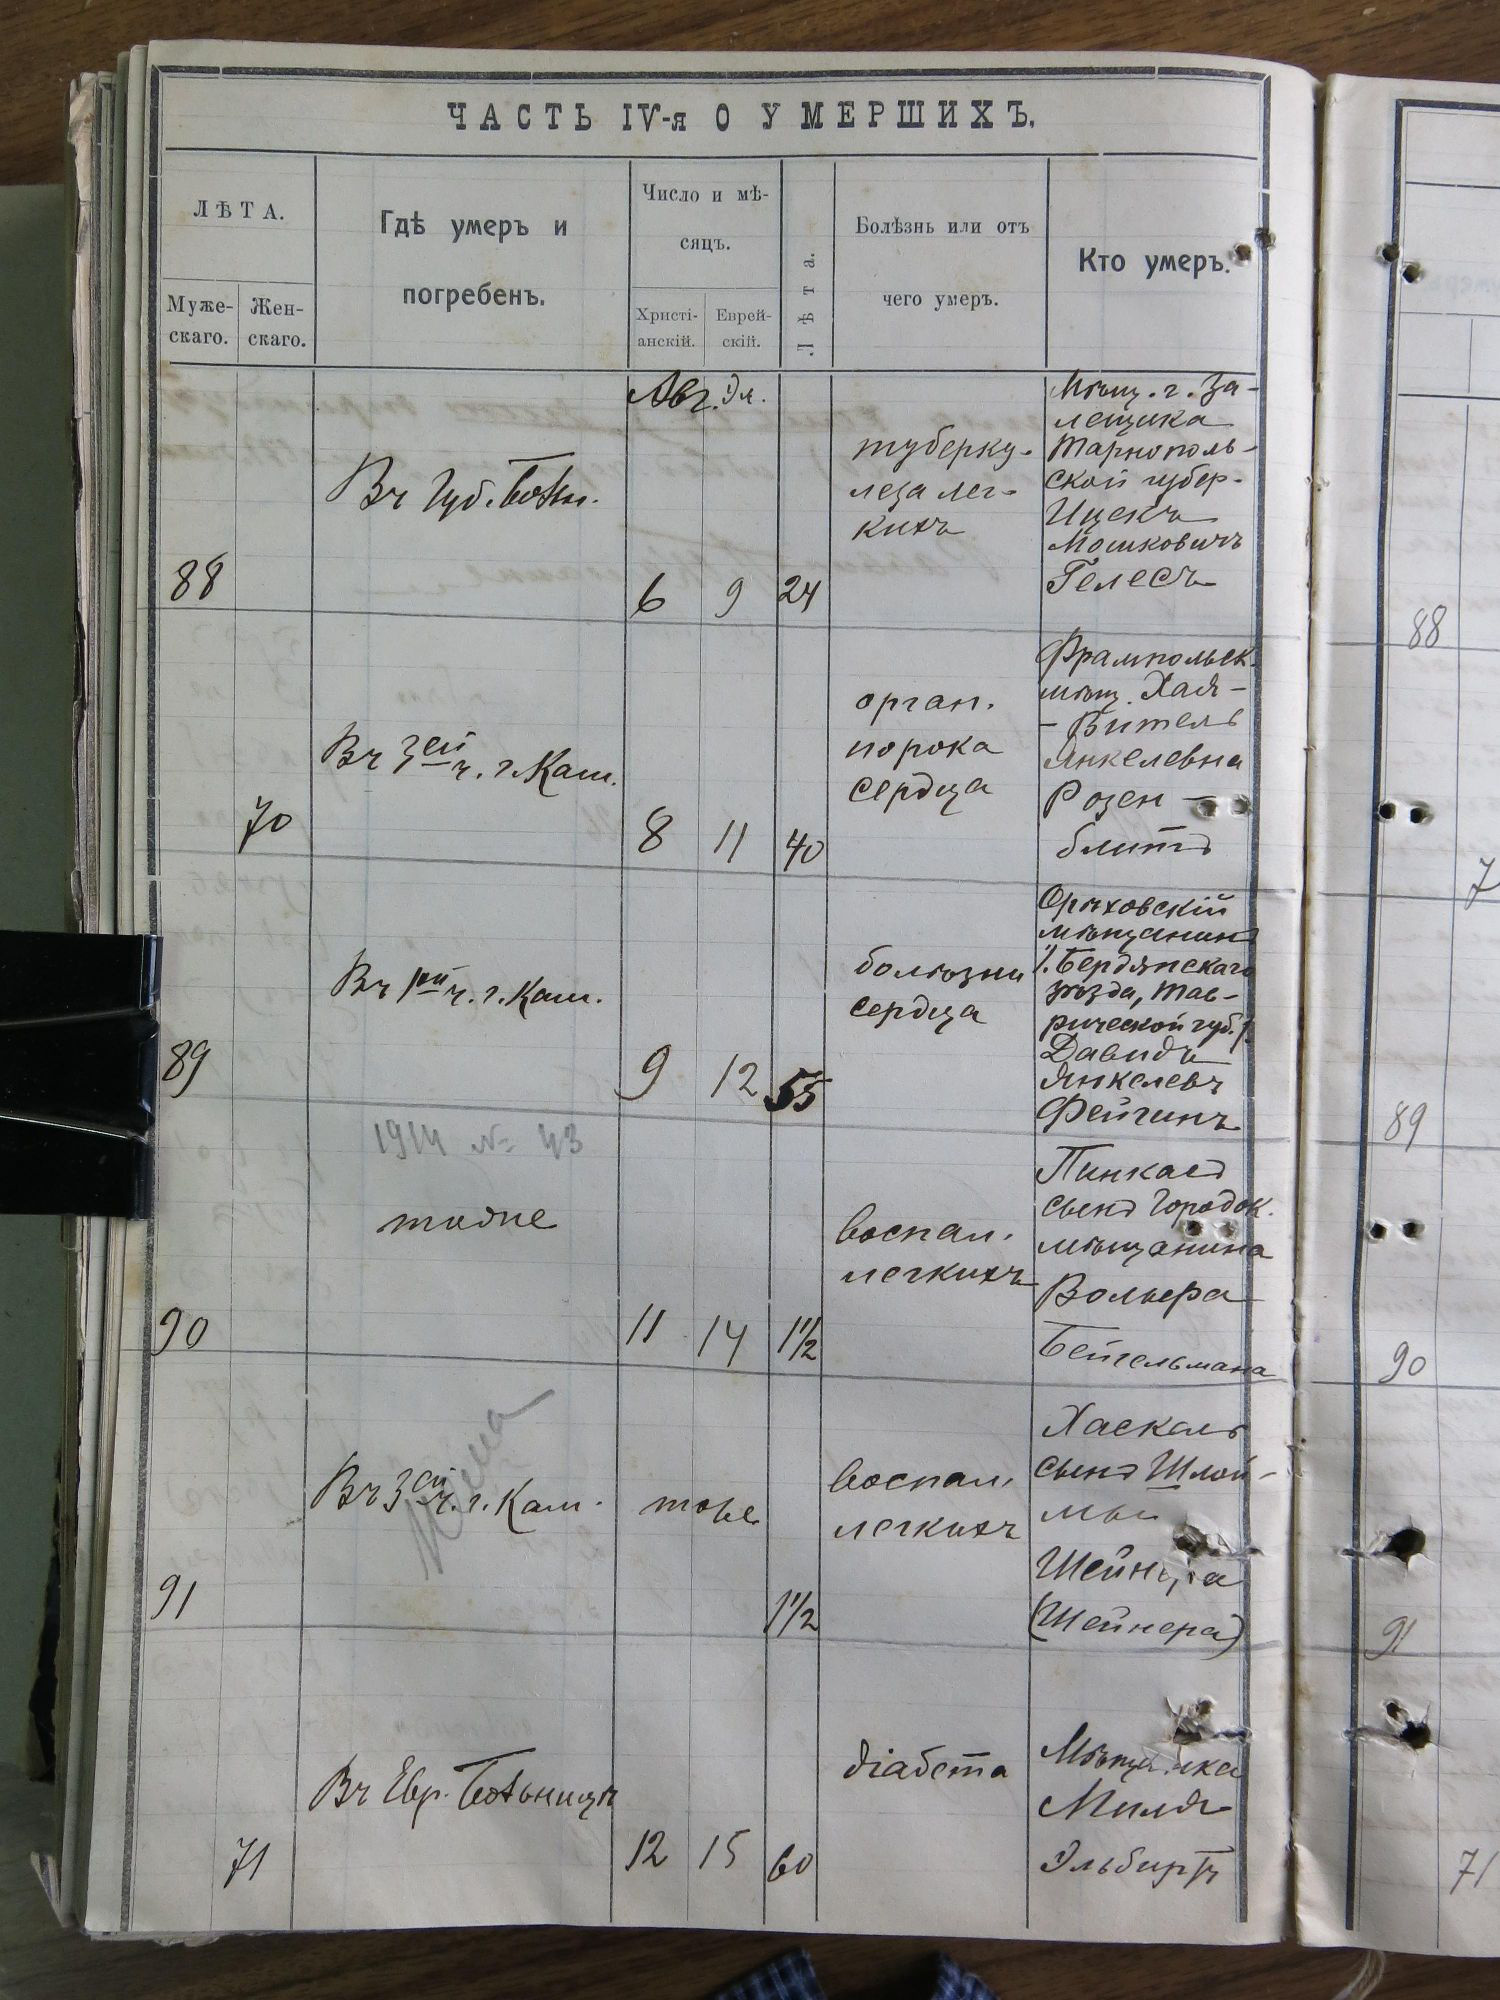 ЧАСТЬ IV-я О УМЕРШИХЪ.
ЛѢТА.
Муже-
скаго.
Жен-
скаго.
Гдѣ умеръ и
погребенъ.
Число и мѣ-
сяцъ.
Христі-
анскій.
Еврей-
скій.
Лѣта.
Болѣзнь или отъ
чего умеръ.
Кто умеръ.
Авг. Эл.
88
Въ Губ. Больн.
6 9 24
туберку-
леза лег-
кихъ
Мѣщ. г. За-
лещика
Тарнополь-
ской губер-
Ицекъ
Мошковичъ
Гелесъ
88
70
Въ 3ей ч. г. Кам.
8 11 40
орган.
порока
сердца
Фрампольск.
мѣщ. Хая-
- Витель
Янкелевна
Розен-
блитъ
7
89
Въ 1ой ч. г. Кам.
9 12 55
болѣзни
сердца
Орѣховскій
мѣщанинъ
/. Бердянскаго
уѣзда, Тав-
рической губ./.
Давидъ
Янкелевъ
Фейгинъ
89
1914 № 43
90
тоже
11 14 1 1/2
воспал.
легкихъ
Пинкасъ
сынъ Городок.
мѣщанина
Вольфа
Бейгельмана
90
91
Въ 3ей ч. г. Кам.
тоже
1 1/2
воспал.
легкихъ
Хаскель
сынъ Шлой-
мы
(Шейнера)
91
71
Въ Евр. Больницѣ
12 15 60
діабета
Миля
Эльбиртъ
71